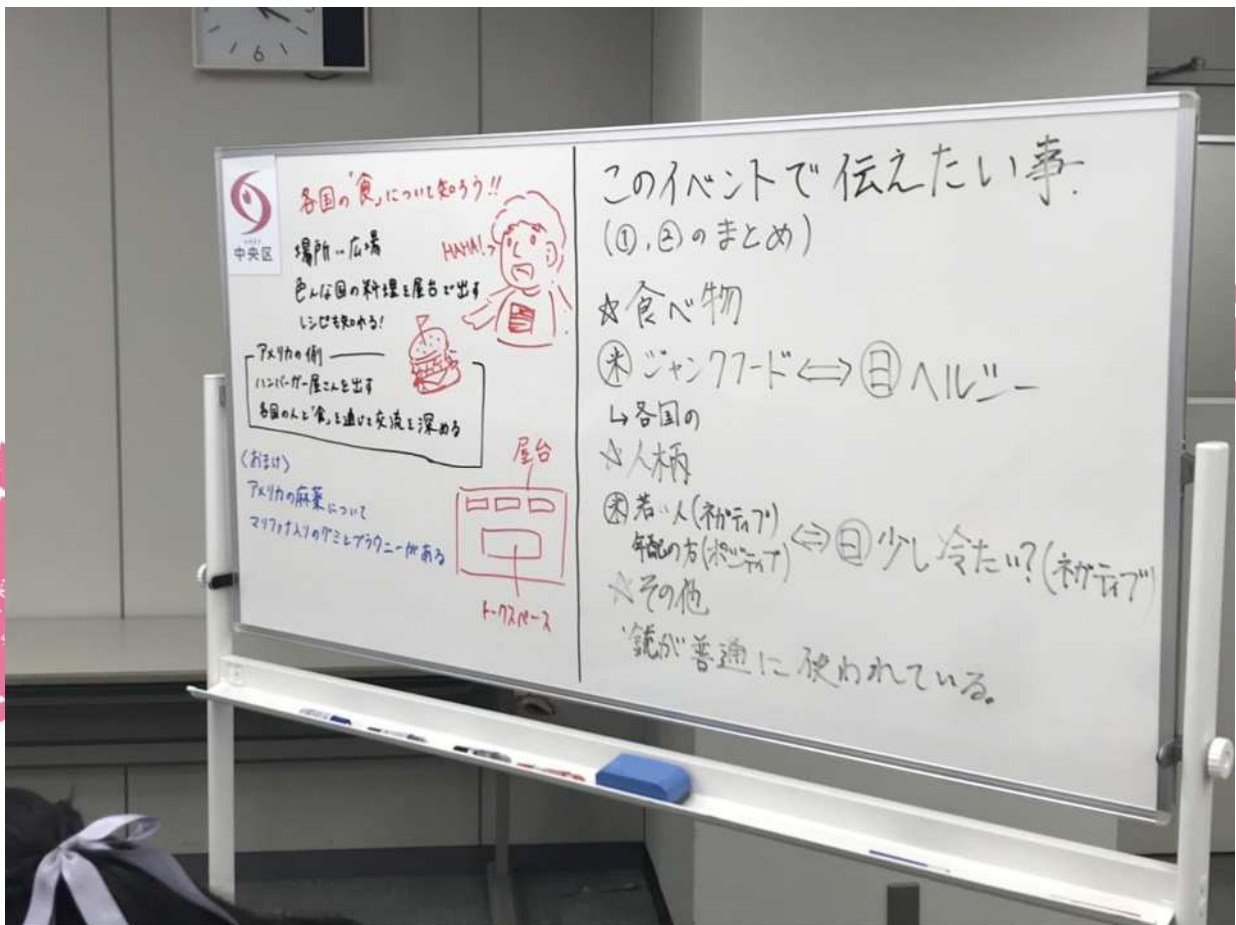 6
中央区
各国の「食」について知ろう!!
場所…広場
HAHA!
色んな国の料理を屋台で出す
レシピも知れる!
アメリカの例
ハンバーガー屋さんを出す
各国の人と「食」を通じて交流を深める
〈おまけ〉
アメリカの麻薬について
マリファナ入りのグミとブラウニーがある
屋台
トークスペース
このイベントで伝えたい事.
(①,②のまとめ)
☆食べ物
㊍ジャンクフード⇔㊐ヘルシー
↳各国の
☆人柄
米 若い人(ネガティブ)
年配の方(ポジティブ)⇔㊐少し冷たい?(ネガティブ)
☆その他
・銃が普通に使われている。